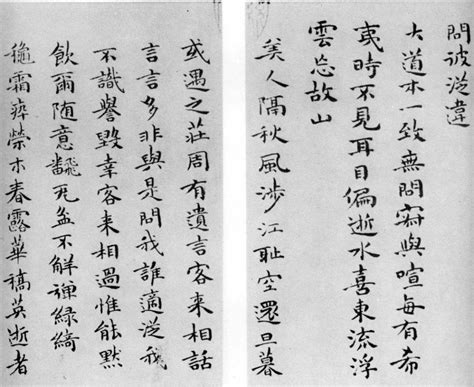 問彼從違
大道本一致無問寂與喧每有希
夷時不見耳目偏逝水喜東流浮
雲忘故山
美人隔秋風涉江恥空還旦暮
或遇之莊周有遺言客來相話
言言多非與是問我誰適從我
不識譽毀幸客來相過惟能默
飲爾随意翻瓦盆不解彈綠綺
穐霜瘁榮木春露華槁英逝者